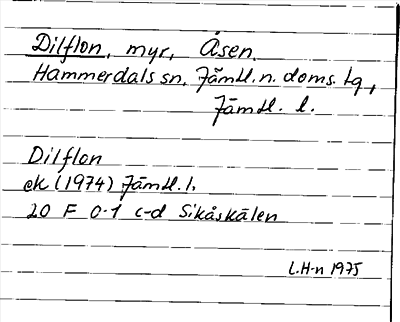 Dilflon, myr, Åsen.
Hammerdals sn, Jämtl. n. doms. tg,
Jämtl. l.
Dilflon
ek (1974) Jämtl. l.
20 F 0-1 c-d Sikåskälen
L.H-n 1975